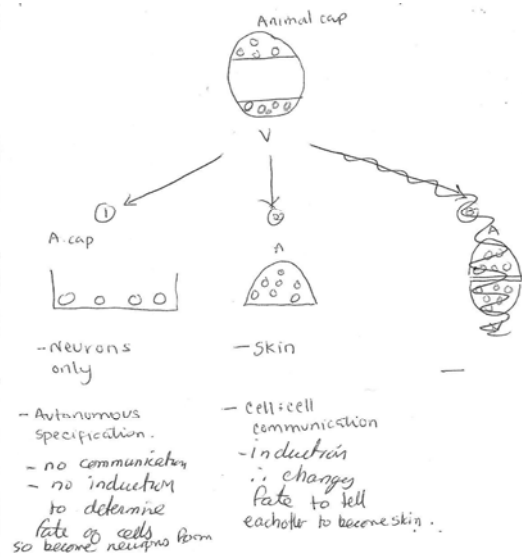 Animal cap
V
①
②
A. cap
A
A
-Neurons
only
- Skin
- Autonomous
specification.
- no communication
- no induction
to determine
fate of cells
so become neurons form
- cell:cell
communication
-induction
∴ changes
fate to tell
eachother to become skin.